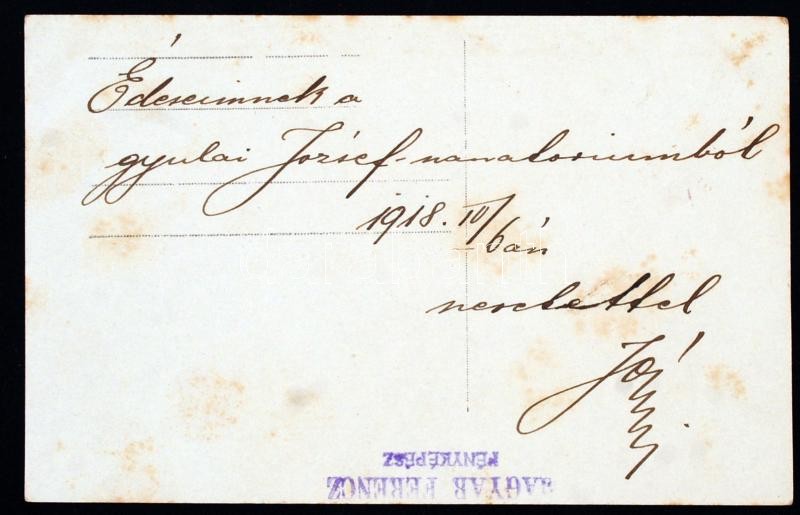 Édeseimnek a
gyulai József-sanatoriumból
1918. IV/6án
szeretettel
Józsi
MAGYAR FERENCZ
FÉNYKÉPÉSZ